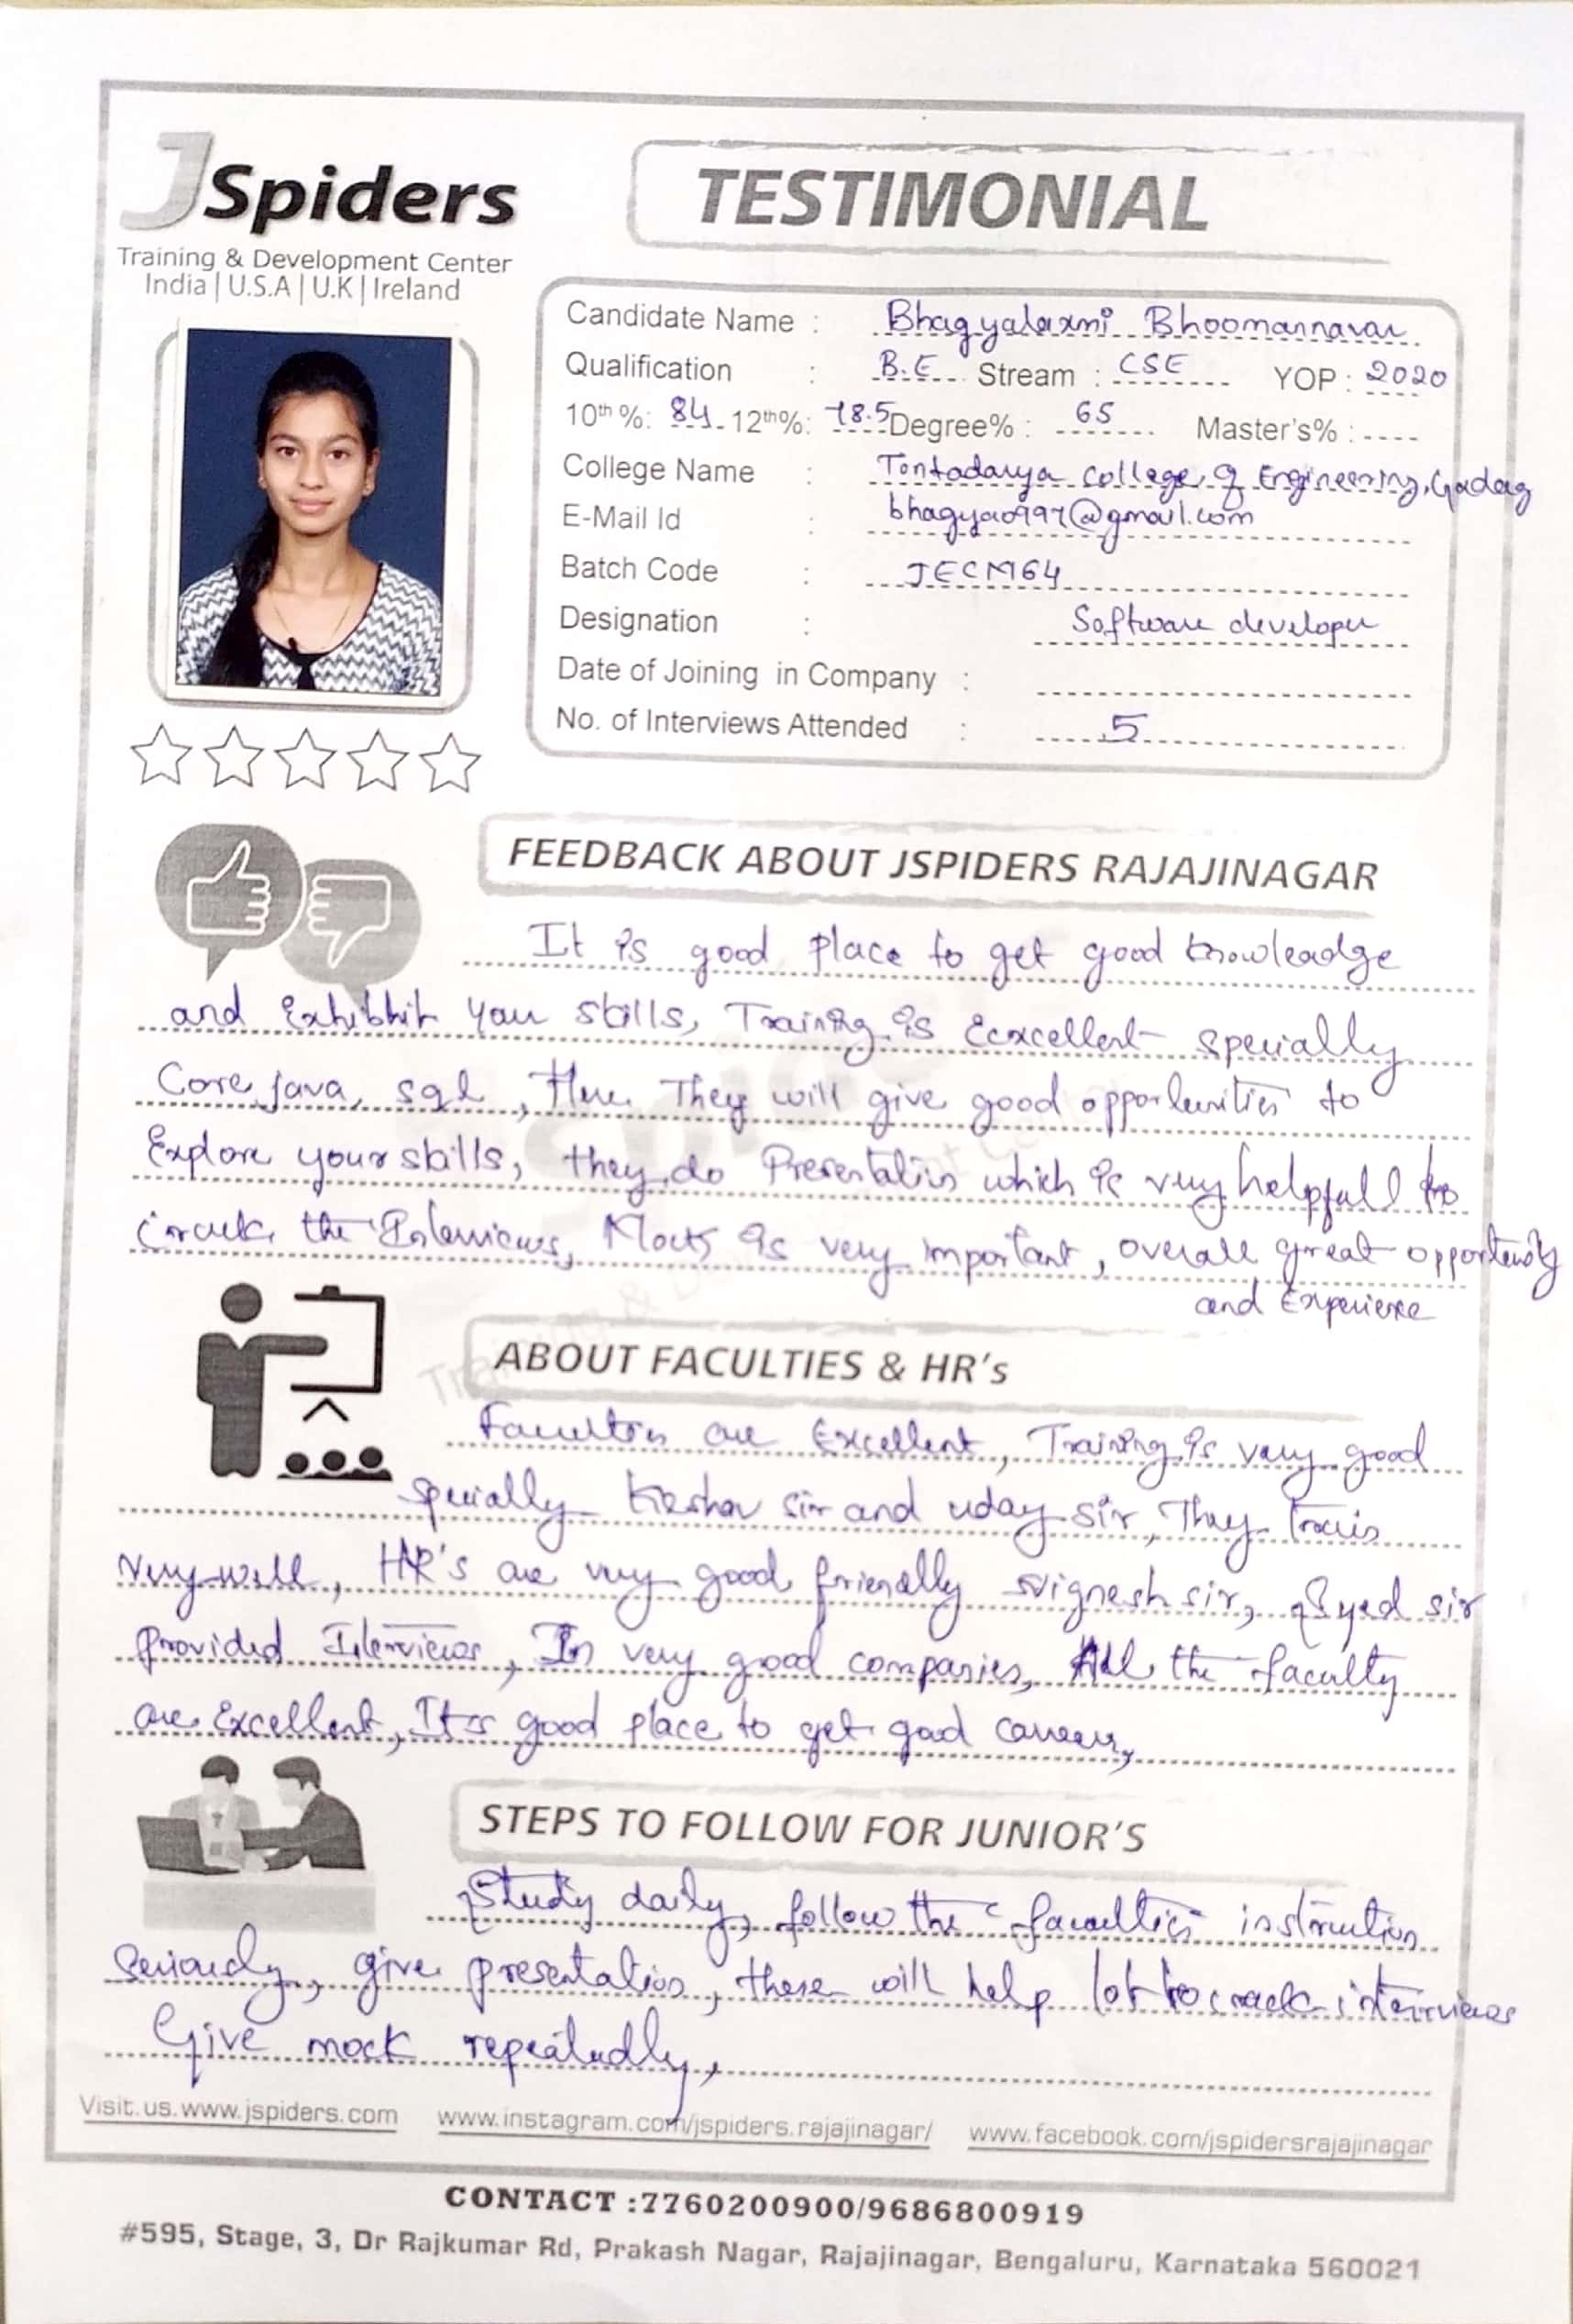 JSpiders
Training & Development Center
India | U.S.A | U.K | Ireland
TESTIMONIAL
Candidate Name : Bhagyalaxmi Bhoomannavar
Qualification : B.E Stream : CSE YOP : 2020
10th %: 84 12th%: 78.5 Degree% : 65 Master's% :
College Name : Tontadarya College of Engineering, Gadag
E-Mail Id : bhagya0997@gmail.com
Batch Code : JECM64
Designation : Software developer
Date of Joining in Company :
No. of Interviews Attended : 5
FEEDBACK ABOUT JSPIDERS RAJAJINAGAR
It is good place to get good knowleadge
and Exhibhit your skills, Training is Ecxcellent specially
Core java, sql, Here They will give good opportunities to
Explore your skills, they do Presentation which is very helpfull to
crack the Interviews, Mock is very important, overall great opportunity
and Experience
ABOUT FACULTIES & HR's
Faculties are Excellent, Training is very good
specially Keshav sir and uday sir, They train
very well, HR's are very good friendly vignesh sir, Syed sir
provided Interviews, In very good companies, All the faculty
are Excellent, It is good place to get good career,
STEPS TO FOLLOW FOR JUNIOR'S
Study daily, follow the faculties instruction
seriously, give presentation, these will help lot to crack interviews
Give mock repeatedly,
Visit.us.www.jspiders.com www.instagram.com/jspiders.rajajinagar/ www.facebook.com/jspidersrajajinagar
CONTACT :7760200900/9686800919
#595, Stage, 3, Dr Rajkumar Rd, Prakash Nagar, Rajajinagar, Bengaluru, Karnataka 560021